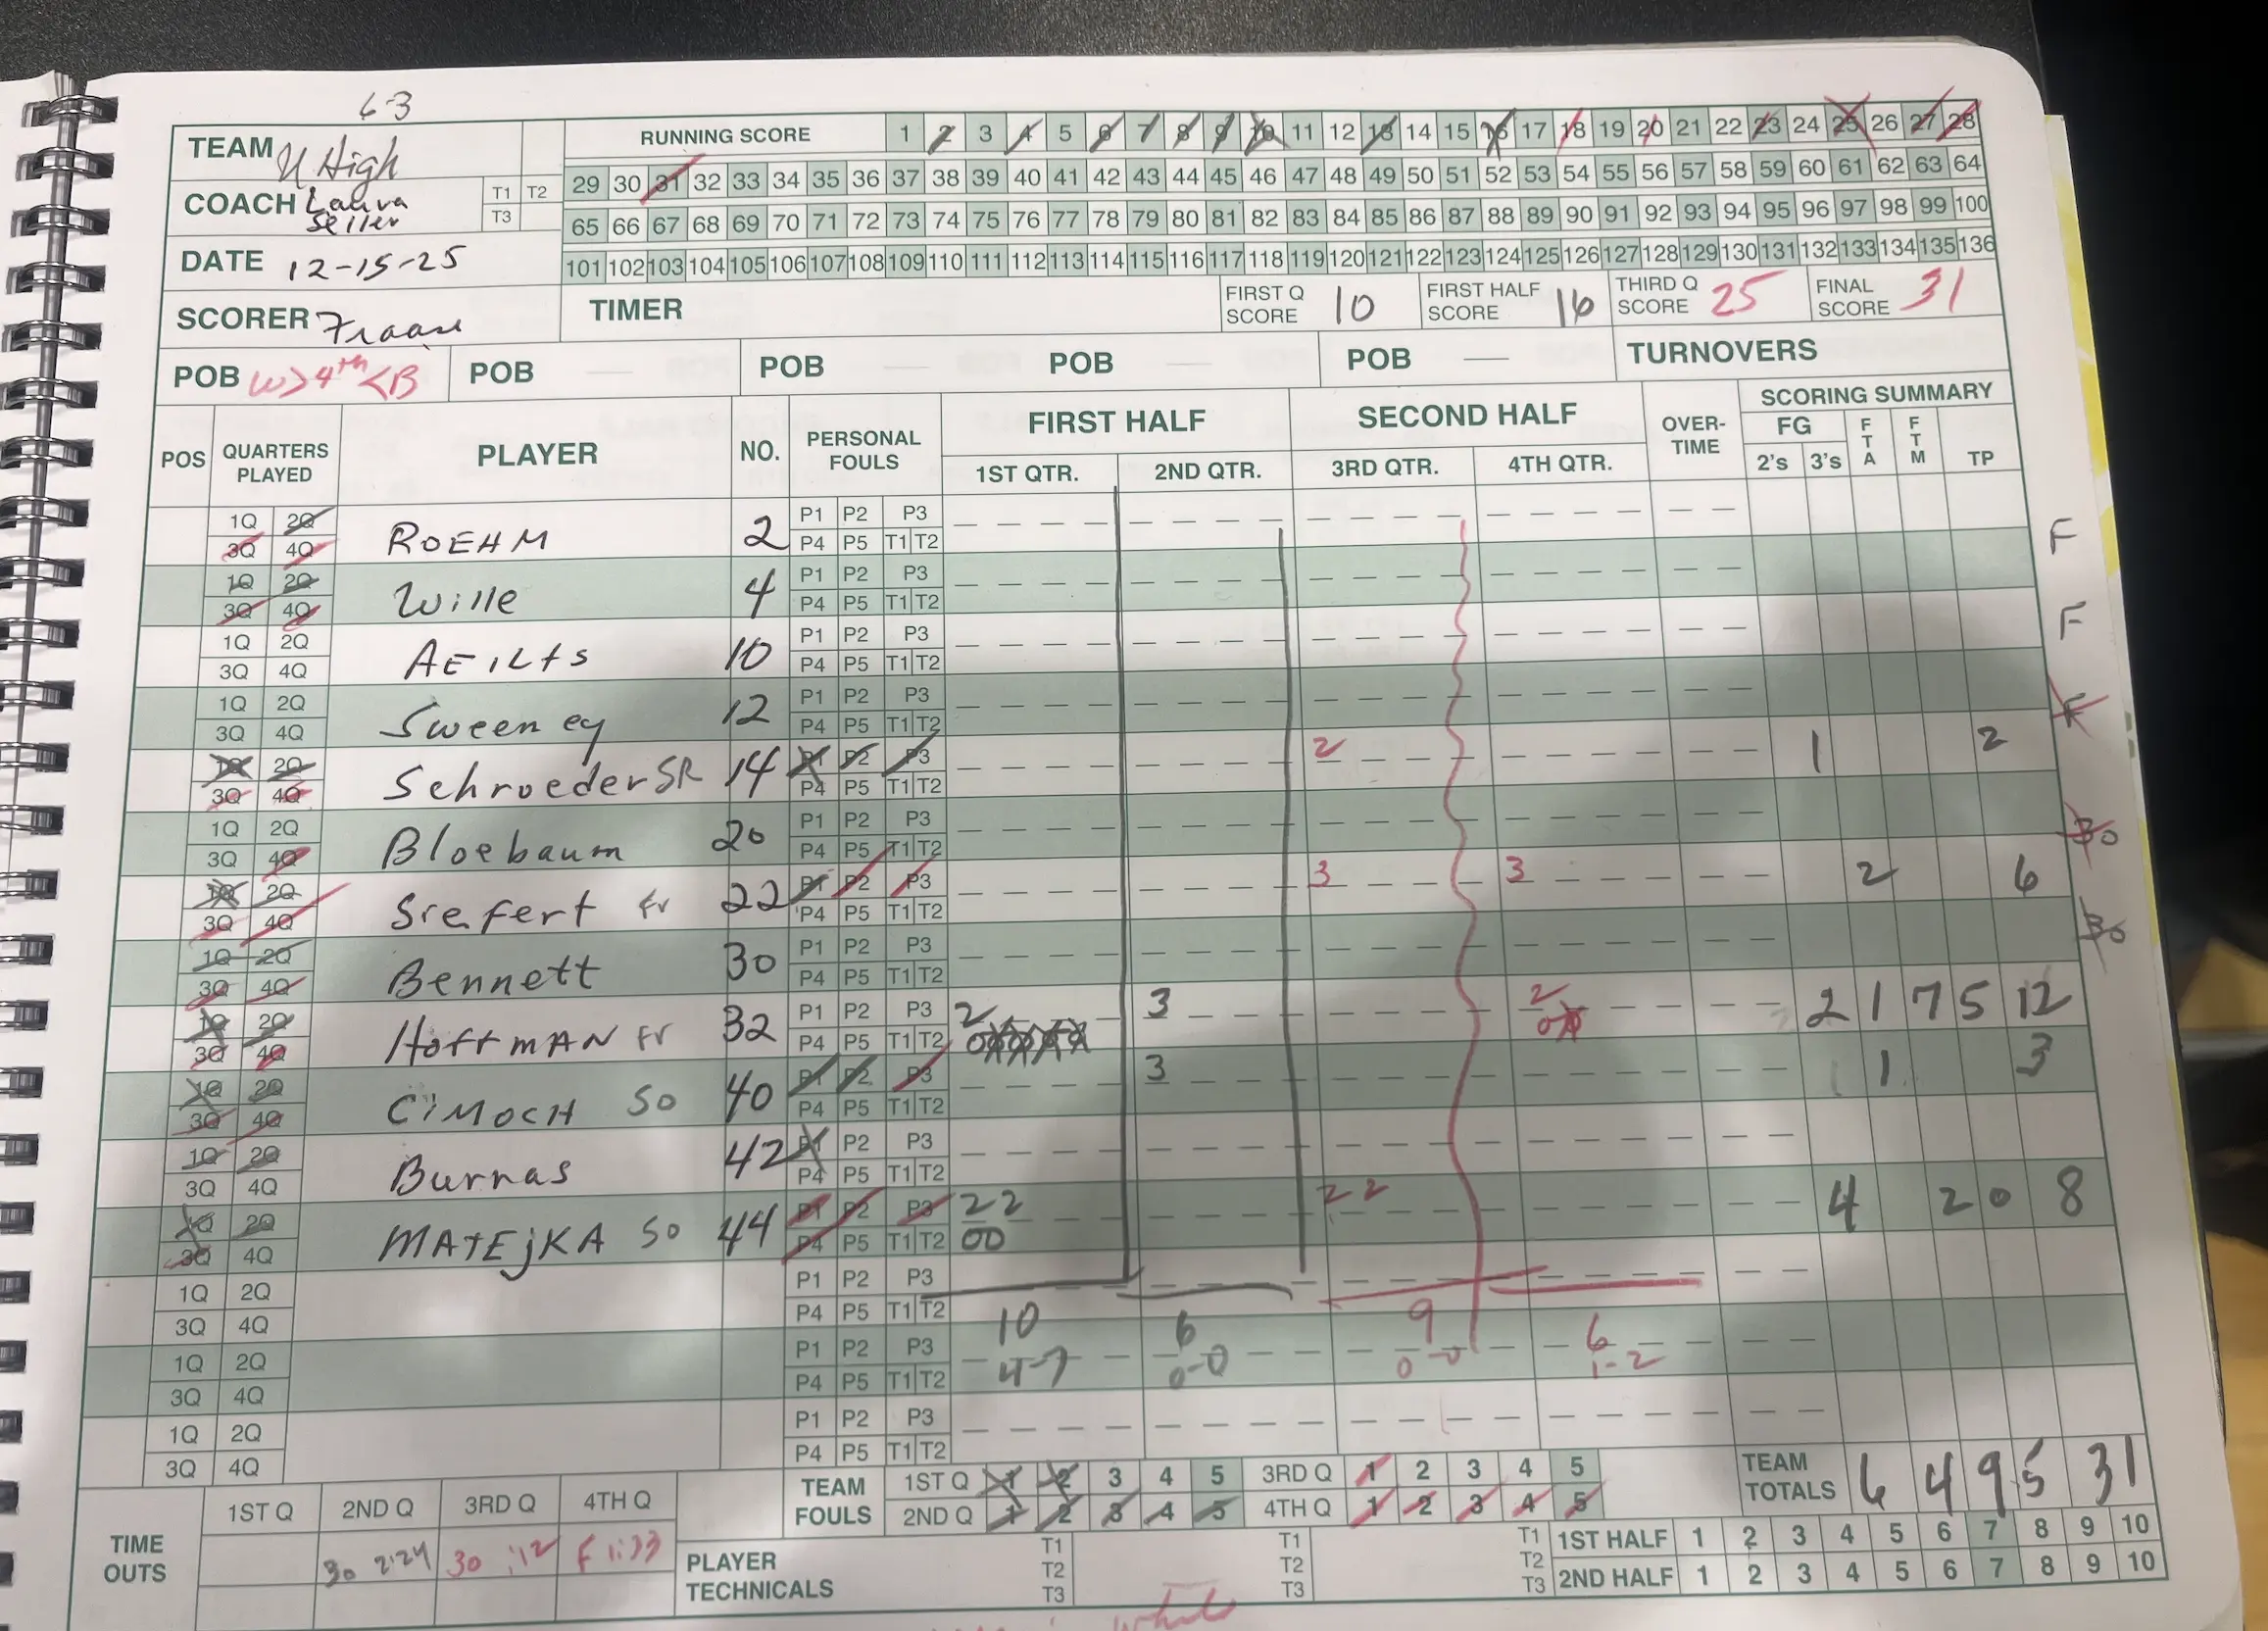 6-3
TEAM U High
RUNNING SCORE 1 2 3 4 5 6 7 8 9 10 11 12 13 14 15 16 17 18 19 20 21 22 23 24 25 26 27 28
COACH Laura Seller T1 T2 T3
29 30 31 32 33 34 35 36 37 38 39 40 41 42 43 44 45 46 47 48 49 50 51 52 53 54 55 56 57 58 59 60 61 62 63 64
65 66 67 68 69 70 71 72 73 74 75 76 77 78 79 80 81 82 83 84 85 86 87 88 89 90 91 92 93 94 95 96 97 98 99 100
DATE 12-15-25
101 102 103 104 105 106 107 108 109 110 111 112 113 114 115 116 117 118 119 120 121 122 123 124 125 126 127 128 129 130 131 132 133 134 135 136
SCORER Fraase TIMER FIRST Q SCORE 10 FIRST HALF SCORE 16 THIRD Q SCORE 25 FINAL SCORE 31
POB W> 4th <B POB POB POB POB TURNOVERS
POS QUARTERS PLAYED PLAYER NO. PERSONAL FOULS FIRST HALF SECOND HALF OVER-TIME SCORING SUMMARY
1ST QTR. 2ND QTR. 3RD QTR. 4TH QTR. FG 2's 3's FTA FTM TP
1Q 2Q 3Q 4Q ROEHM 2 P1 P2 P3 P4 P5 T1 T2 F
1Q 2Q 3Q 4Q Wille 4 P1 P2 P3 P4 P5 T1 T2 F
1Q 2Q 3Q 4Q AEILtS 10 P1 P2 P3 P4 P5 T1 T2
1Q 2Q 3Q 4Q Sweeney 12 P1 P2 P3 P4 P5 T1 T2 F
1Q 2Q 3Q 4Q Schroeder SR 14 P1 P2 P3 P4 P5 T1 T2 2 1 2
1Q 2Q 3Q 4Q Bloebaum 20 P1 P2 P3 P4 P5 T1 T2 30
1Q 2Q 3Q 4Q Siefert Fr 22 P1 P2 P3 P4 P5 T1 T2 3 3 2 6
1Q 2Q 3Q 4Q Bennett 30 P1 P2 P3 P4 P5 T1 T2 30
1Q 2Q 3Q 4Q HoffmAN Fr 32 P1 P2 P3 P4 P5 T1 T2 2 3 2 2 1 7 5 12
1Q 2Q 3Q 4Q CiMOCH SO 40 P1 P2 P3 P4 P5 T1 T2 3 1 3
1Q 2Q 3Q 4Q Burnas 42 P1 P2 P3 P4 P5 T1 T2
1Q 2Q 3Q 4Q MATEjKA SO 44 P1 P2 P3 P4 P5 T1 T2 22 00 22 4 2 0 8
1Q 2Q 3Q 4Q P1 P2 P3 P4 P5 T1 T2 10 6 9 6
1Q 2Q 3Q 4Q P1 P2 P3 P4 P5 T1 T2 4-7 0-0 0-0 1-2
1Q 2Q 3Q 4Q P1 P2 P3 P4 P5 T1 T2
TEAM FOULS 1ST Q 1 2 3 4 5 3RD Q 1 2 3 4 5 TEAM TOTALS 6 4 9 5 31
2ND Q 1 2 3 4 5 4TH Q 1 2 3 4 5
TIME OUTS 1ST Q 2ND Q 3RD Q 4TH Q
30 2:24 30 :12 F 1:33
PLAYER TECHNICALS T1 T2 T3 T1 T2 T3 T1 T2 T3
1ST HALF 1 2 3 4 5 6 7 8 9 10
2ND HALF 1 2 3 4 5 6 7 8 9 10